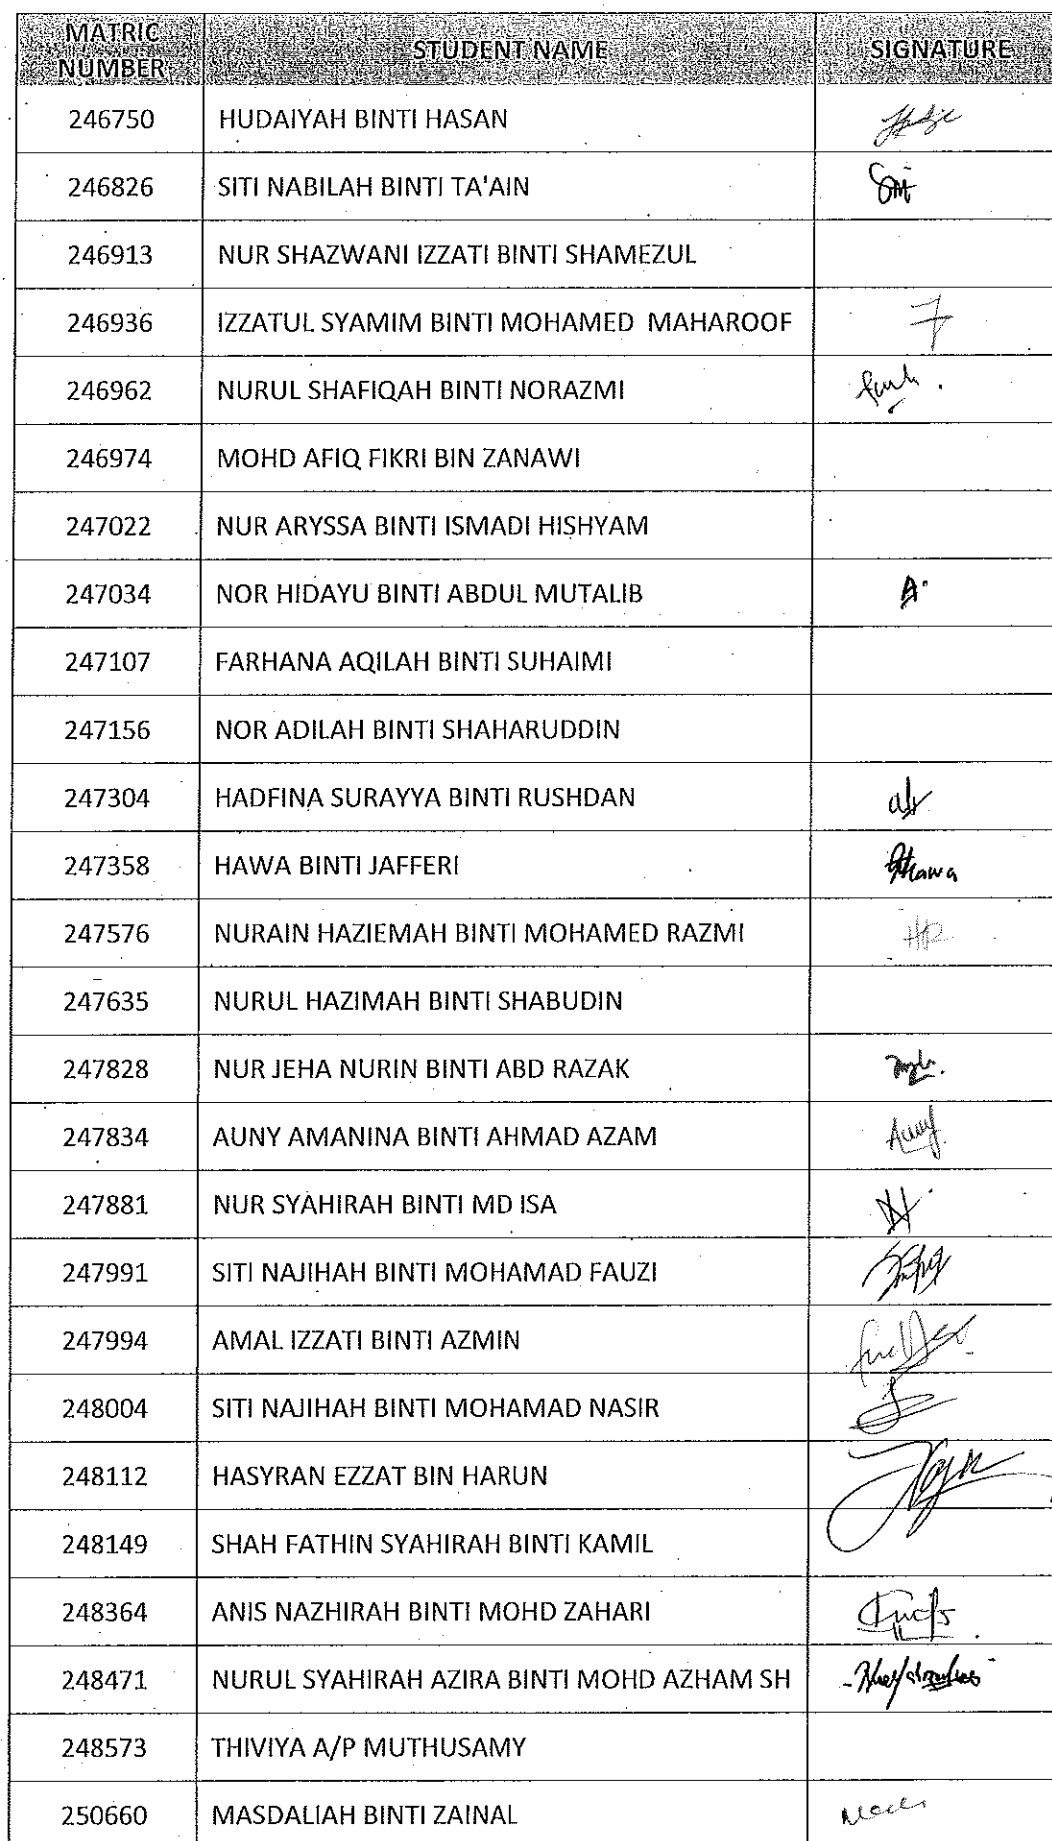 MATRIC NUMBER STUDENT NAME SIGNATURE
246750 HUDAIYAH BINTI HASAN
246826 SITI NABILAH BINTI TA'AIN
246913 NUR SHAZWANI IZZATI BINTI SHAMEZUL
246936 IZZATUL SYAMIM BINTI MOHAMED MAHAROOF
246962 NURUL SHAFIQAH BINTI NORAZMI
246974 MOHD AFIQ FIKRI BIN ZANAWI
247022 NUR ARYSSA BINTI ISMADI HISHYAM
247034 NOR HIDAYU BINTI ABDUL MUTALIB
247107 FARHANA AQILAH BINTI SUHAIMI
247156 NOR ADILAH BINTI SHAHARUDDIN
247304 HADFINA SURAYYA BINTI RUSHDAN
247358 HAWA BINTI JAFFERI
247576 NURAIN HAZIEMAH BINTI MOHAMED RAZMI
247635 NURUL HAZIMAH BINTI SHABUDIN
247828 NUR JEHA NURIN BINTI ABD RAZAK
247834 AUNY AMANINA BINTI AHMAD AZAM
247881 NUR SYAHIRAH BINTI MD ISA
247991 SITI NAJIHAH BINTI MOHAMAD FAUZI
247994 AMAL IZZATI BINTI AZMIN
248004 SITI NAJIHAH BINTI MOHAMAD NASIR
248112 HASYRAN EZZAT BIN HARUN
248149 SHAH FATHIN SYAHIRAH BINTI KAMIL
248364 ANIS NAZHIRAH BINTI MOHD ZAHARI
248471 NURUL SYAHIRAH AZIRA BINTI MOHD AZHAM SH
248573 THIVIYA A/P MUTHUSAMY
250660 MASDALIAH BINTI ZAINAL